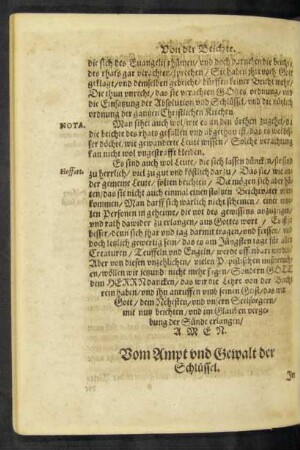 Von der Beichte.
die sich des Euangelij rhümen/ vnd doch darneben die beicht
des rhats gar verachten/ sprechen/ Sie haben jhr noth Gott
geklagt/ vnd demselben gebeicht/ dürffen keiner Beicht mehr/
Die thun vnrecht/ das sie verachten Gottes ordnung/ vnd
die Einsatzung der Absolution vnd Schlüssel/ vnd die löblich
ordnung der gantzen Christlichen Kirchen.
NOTA.
Man sihet auch wol/ wie es an den orthen zugehet/ da
die beichte des rhats gefallen vnd abgethon ist/ das es
döchte/ wie gewanderte Leute wissen/ Solche verachtung
kan nicht wol vngestrafft bleiben.
Hoffart.
Es sind auch wol Leute/ die sich lassen duncken/ sie sind
zu herrlich/ viel zu gut vnd köstlich dar zu/ Das sie/ wie an
der gemeine Leute/ solten beichten/ Die mögen sich aber
den/ das sie nicht auch einmal einen Beichtvater
kommen/ Man darff sich warlich nicht schemen/ einer
ten Personen in geheime/ die not des gewissens anzuzeigen/
vnd rath dawider zu erlangen/ aus Gottes wort/ Es ist
besser/ denn sich jhar vnd tag darmit tragen/ vnd fressen/ vnd
doch letzlich gewertig sein/ das es am Jüngsten tage für allen
Creaturen/ Teuffeln vnd Engeln/ werde offenbart werden/
Aber von diesen vnzehlichen/ vielen
en/ wöllen wir jetzund nicht mehr sagen/ Sondern GOTT
dem HERRN dancken/ das wir die Lehre von der Beicht
rein haben/ vnd jhn anruffen vmb seinen Geist/ das wir
Gott/ dem Nehesten/ vnd vnsern Seelsorgern/
mit nutz beichten/ vnd im Glauben verge
bung der Sünde erlangen/
A M E N.
Vom Ampt vnd Gewalt der
Schlüssel.
In